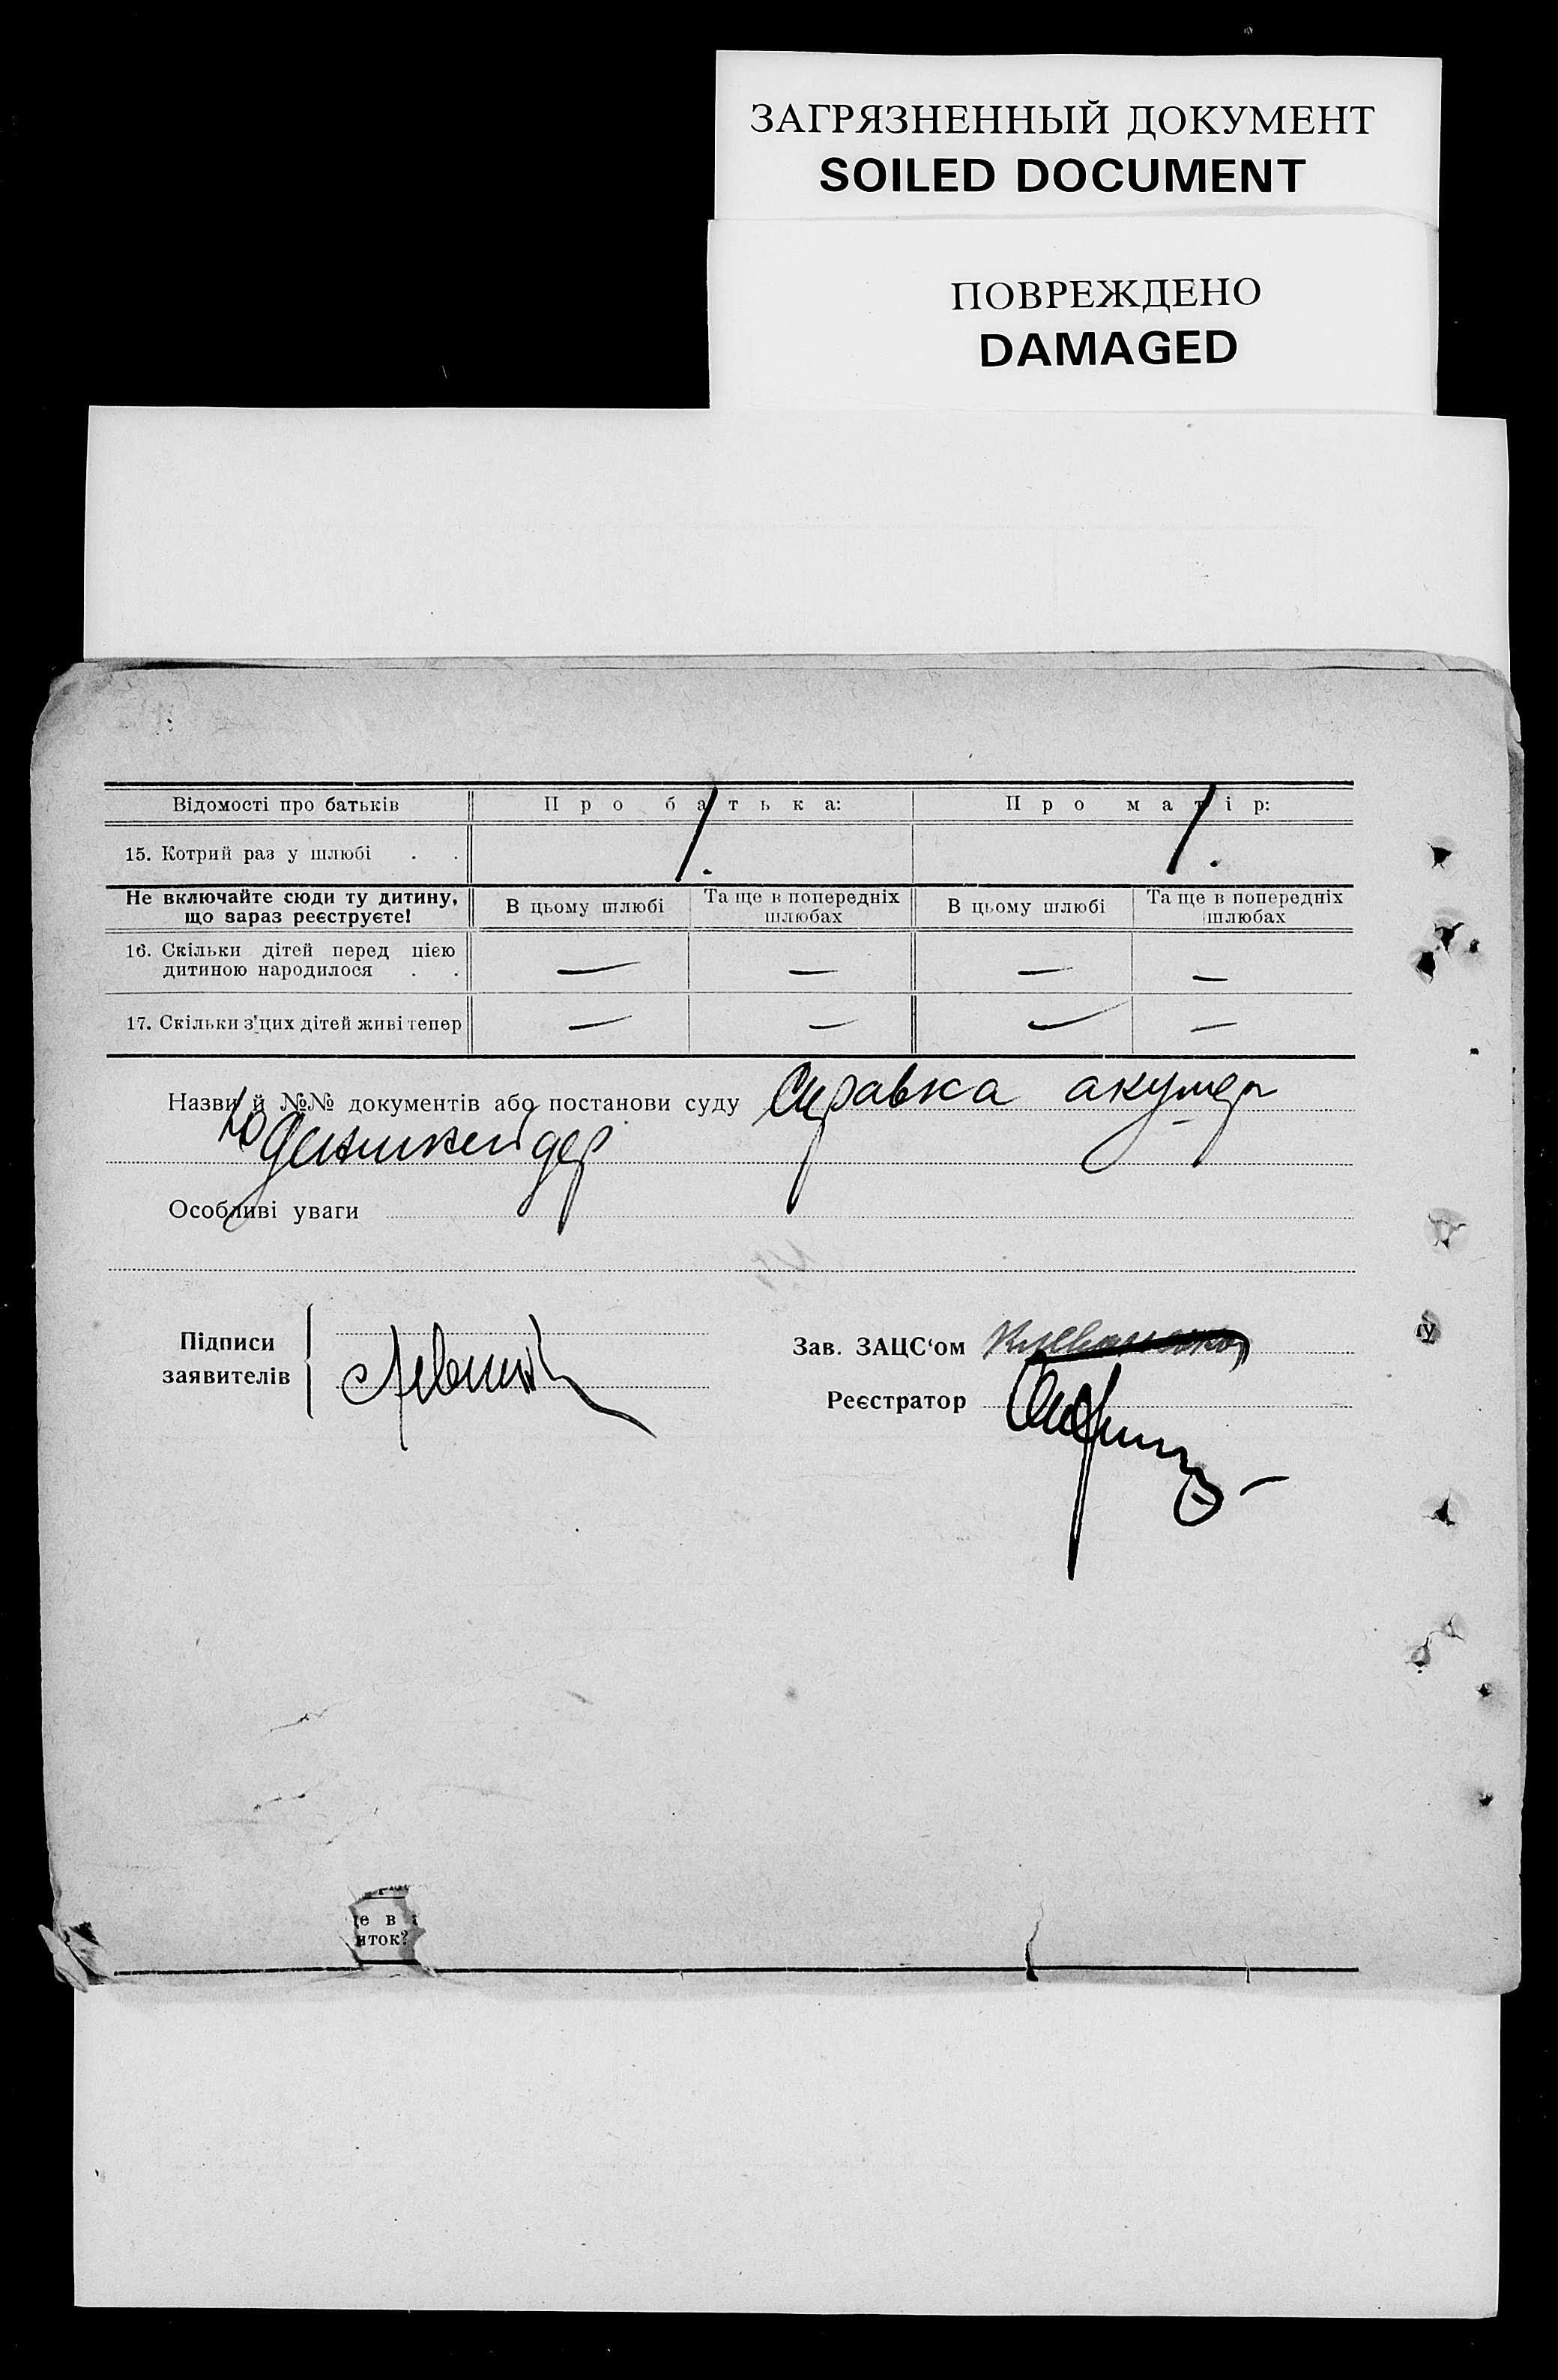 ЗАГРЯЗНЕННЫЙ ДОКУМЕНТ
SOILED DOCUMENT
ПОВРЕЖДЕНО
DAMAGED
Відомості про батьків Про батька: Про матір:
15. Котрий раз у шлюбі . . 1. 1.
Не включайте сюди ту дитину, що зараз реєструєте! В цьому шлюбі Та ще в попередніх шлюбах В цьому шлюбі Та ще в попередніх шлюбах
16. Скільки дітей перед цією
дитиною народилося . . — — — —
17. Скільки з'цих дітей живі тепер — — — —
Назви й №№ документів або постанови суду Справка акушер
Особливі уваги
Підписи
заявителів
Зав. ЗАЦС‘ом
Реєстратор
е в
иток?